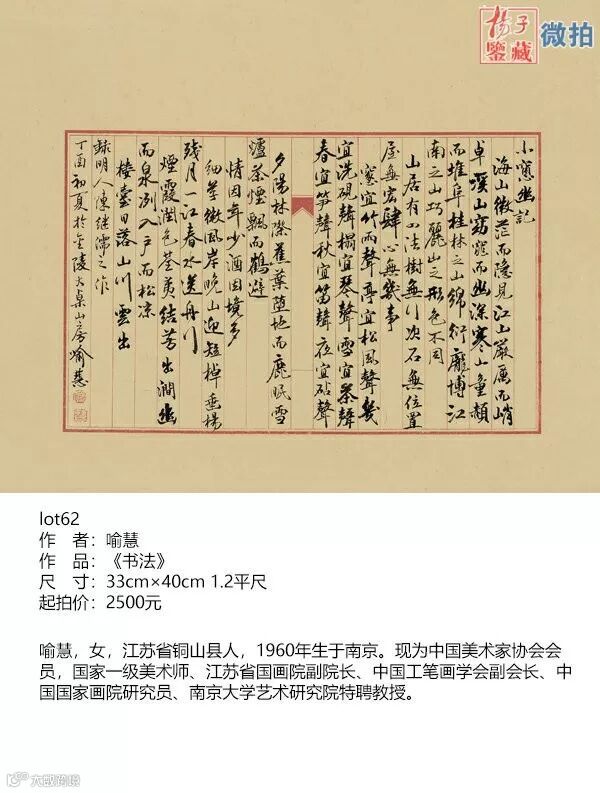 杨子
鉴藏
微拍
小窗幽记
海山微茫而隐见江山嚴厲而峭
卓溪山窈窕而幽深寒山童頳
而堆阜桂林之山錦衍龐博江
南之山巧麗山之形色不同
山居有四法樹無行次石無位置
屋無宏肆心無幾事
寒宜竹雨聲亭宜松風聲幾
宜洗硯聲榻宜琴聲雪宜茶聲
春宜箏聲秋宜笛聲夜宜砧聲
夕陽林際蕉葉墮地而鹿眠雪
爐茶煙飄而鶴避
情因年少酒因境多
細草微風岸晚山迎短棹垂楊
殘月一江春水送舟行
煙霞潤色荃荑結芳出澗幽
而泉冽入戶而松凉
樓臺日落山川雲出
録明人陳继儒之作
丁酉初夏於金陵大桌山房喻慧
lot62
作 者：喻慧
作 品：《书法》
尺 寸：33cm×40cm 1.2平尺
起拍价：2500元
喻慧，女，江苏省铜山县人，1960年生于南京。现为中国美术家协会会
员，国家一级美术师、江苏省国画院副院长、中国工笔画学会副会长、中
国国家画院研究员、南京大学艺术研究院特聘教授。
大数跨境